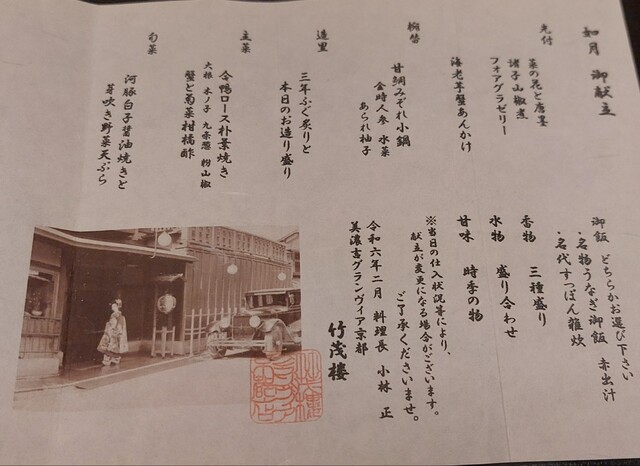 如月 御献立
先付
菜の花と唐墨
諸子山椒煮
フォアグラゼリー
海老芋蟹あんかけ
椀替
甘鯛みぞれ小鍋
金時人参 水菜
あられ柚子
造里
三年ふぐ炙りと
本日のお造り盛り
主菜
合鴨ロース朴葉焼き
大根 木ノ子 九条葱 粉山椒
蟹と菊菜柑橘酢
旬菜
河豚白子醤油焼きと
芽吹き野菜天ぷら
御飯 どちらかお選び下さい
・名物うなぎ御飯 赤出汁
・名代すっぽん雑炊
香物 三種盛り
水物 盛り合わせ
甘味 時季の物
※当日の仕入状況等により、
献立が変更になる場合がございます。
ご了承くださいませ。
令和六年二月 料理長 小林 正
美濃吉グランヴィア京都
竹茂楼